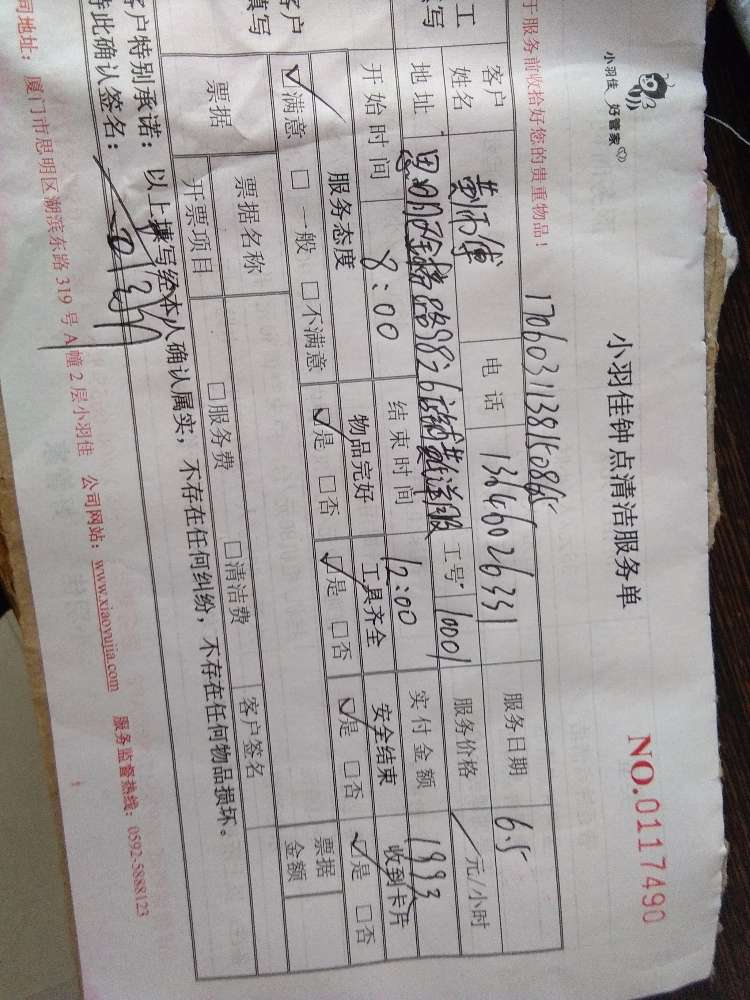 小羽佳 好管家
小羽佳钟点清洁服务单
NO.0117490
于服务前收拾好您的贵重物品！
工
写
客户姓名 黄师傅 电话 13646026331 服务日期 6.5
地址 思明区 工号 10001 服务价格 元/小时
开始时间 8:00 结束时间 12:00 实付金额 1993
客户
填写
服务态度 物品完好 工具齐全 安全结束 收到卡片
☑满意 □一般 □不满意 ☑是 □否 ☑是 □否 ☑是 □否 ☑是 □否
票据 票据名称 客户签名 票据金额
开票项目 □服务费 □清洁费
客户特别承诺：以上填写经本人确认属实，不存在任何纠纷，不存在任何物品损坏。
特此确认签名：
司地址：厦门市思明区湖滨东路319号A幢2层小羽佳 公司网站：www.xiaoyujia.com 服务监督热线：0592-5888123